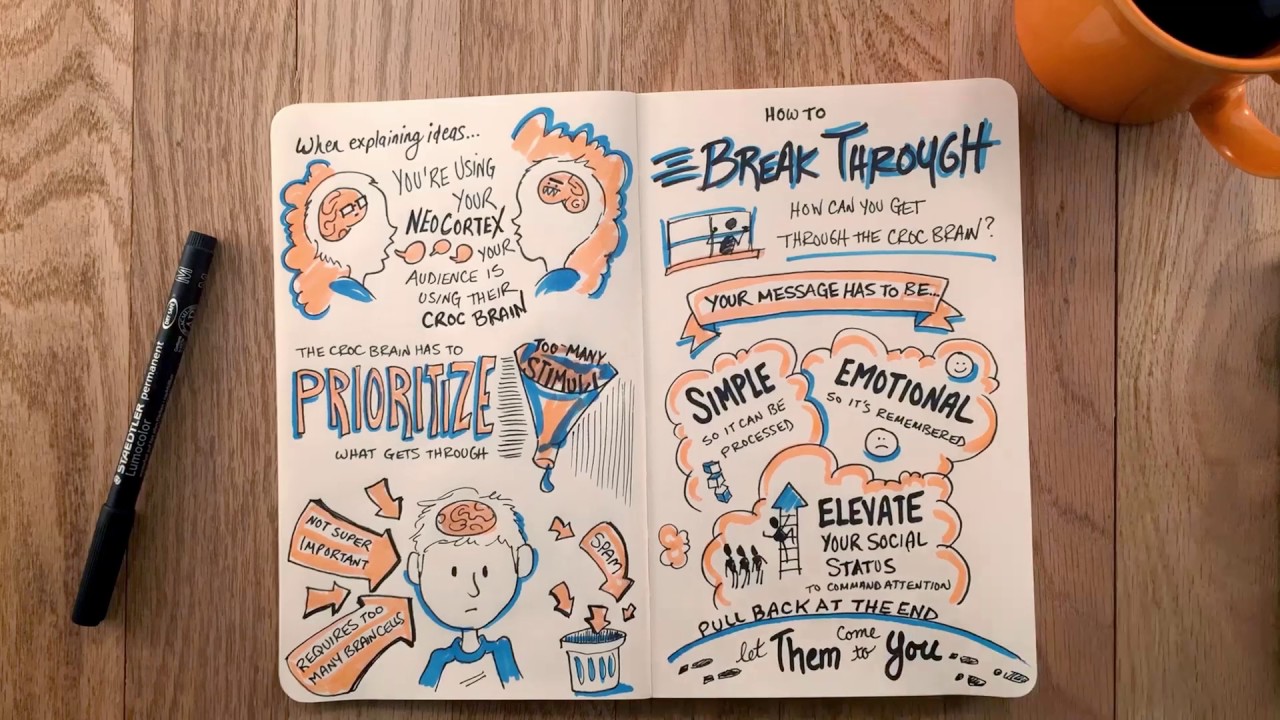 When explaining ideas...
YOU'RE USING
YOUR
NEOCORTEX
YOUR
AUDIENCE IS
USING THEIR
CROC BRAIN
THE CROC BRAIN HAS TO
PRIORITIZE
WHAT GETS THROUGH
TOO MANY
STIMULI
NOT SUPER
IMPORTANT
REQUIRES TOO
MANY BRAINCELLS
SPAM
HOW TO
BREAK THROUGH
HOW CAN YOU GET
THROUGH THE CROC BRAIN?
YOUR MESSAGE HAS TO BE...
SIMPLE
SO IT CAN BE
PROCESSED
EMOTIONAL
SO IT'S REMEMBERED
ELEVATE
YOUR SOCIAL
STATUS
TO COMMAND ATTENTION
PULL BACK AT THE END
let Them come to You
STAEDTLER permanent
Lumocolor
M